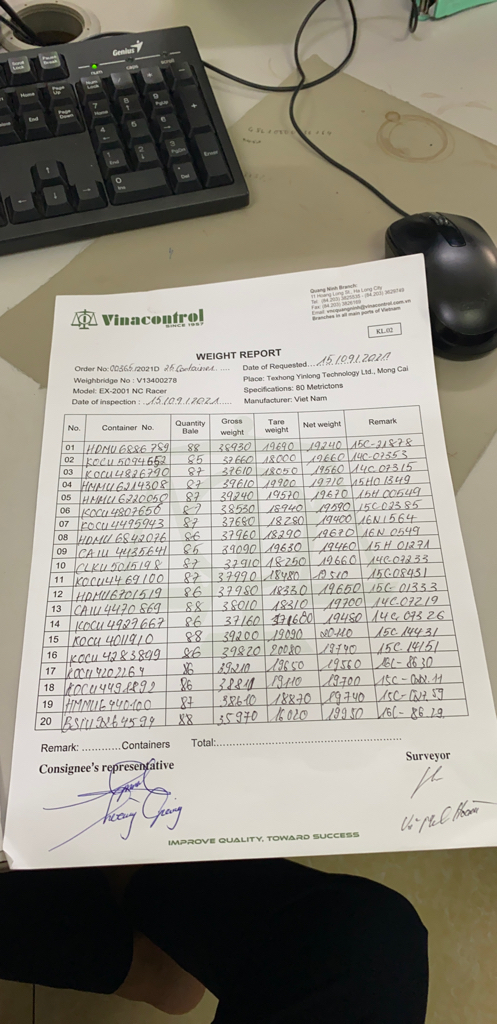 Genius
Home
Page Up
End
Page Down
Enter
Quang Ninh Branch:
11 Hoang Long St., Ha Long City
Vinacontrol
SINCE 1957
Branches in all main ports of Vietnam
KL.02
WEIGHT REPORT
Order No: 00365/2021D 25 Container
Date of Requested 15/09/2021
Weighbridge No : V13400278
Place: Texhong Yinlong Technology Ltd., Mong Cai
Model: EX-2001 NC Racer
Specifications: 80 Metrictons
Date of inspection : 15/09/2021
Manufacturer: Viet Nam
No. Container No. Quantity Bale Gross weight Tare weight Net weight Remark
01 HDMU6886789 88 38930 19690 19240 15C-21878
02 KOCU5094652 85 37660 18000 19660 14C-07353
03 KOCU4826790 87 37610 18050 19560 14C.07315
04 HMMU6214308 87 39610 19900 19710 15H01349
05 HMMU6220050 87 39240 19570 19670 15H.00549
06 KOCU4807650 87 38530 18940 19590 15C.02385
07 KOCU4495943 87 37680 18280 19400 16N1564
08 HDMU6842076 86 37960 18290 19670 16N.0549
09 CAIU4435641 85 39090 19630 19460 15H.01271
10 CLKU5015198 87 37910 18250 19660 14C.07233
11 KOCU4469100 87 37990 18480 19510 15C.08431
12 HDMU6701519 86 37980 18330 19650 15C-01333
13 CAIU4470869 88 38010 18310 19700 14C.07219
14 KOCU4929667 86 37160 19480 14C.07326
15 KOCU4011910 88 39200 19090 20110 15C.14431
16 KOCU4283899 86 39820 20080 19740 15C.14151
17 KOCU4202264 86 39210 19650 19560 16L-8630
18 86 38810 19110 19700
19 87 38610 18870 19740
20 88 35970 16020 19950
Remark: ............Containers Total:
Consignee's representative
Surveyor
IMPROVE QUALITY, TOWARD SUCCESS